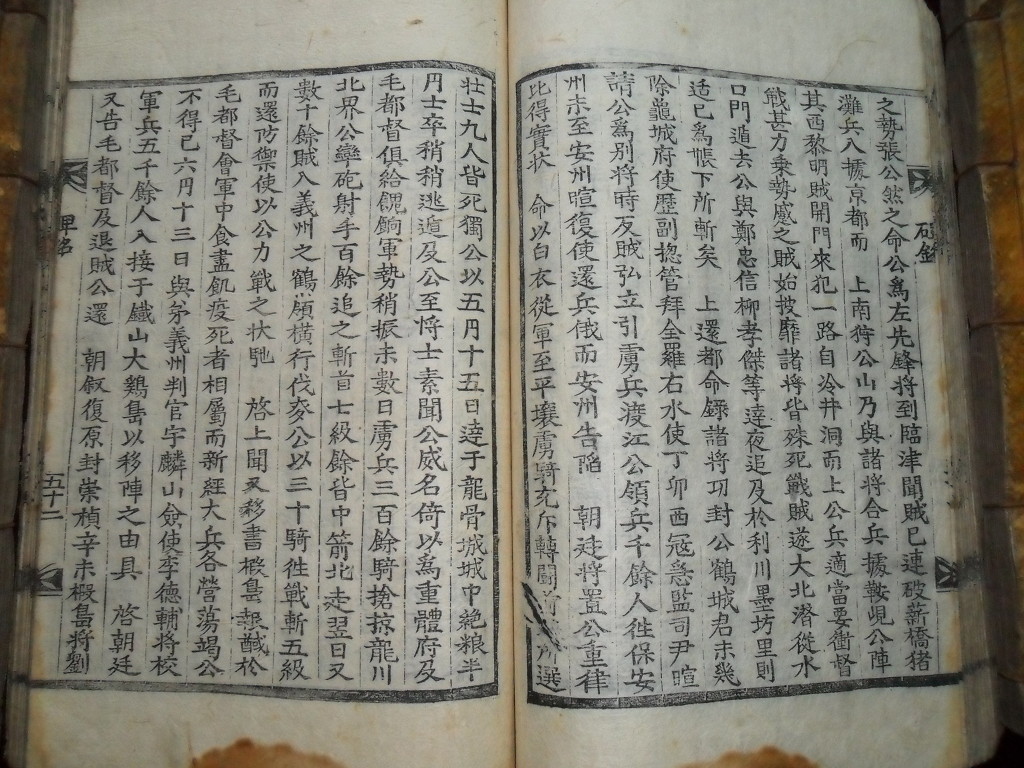 之勢張公然之命公爲左先鋒將到臨津聞賊已連破新橋猪
灘兵入據京都而 上南狩公山乃與諸將合兵據鞍峴公陣
其西黎明賊開門來犯一路自冷井洞而上公兵適當要衝督
戰甚力方乗勢蹙之賊始披靡諸將皆殊死戰賊遂大北潜從水
口門遁去公與鄭忠信柳孝傑等達夜追及於利川墨坊里則
适已爲帳下所斬矣 上還都命錄諸將功封公鶴城君未幾
除龜城府使歷副摠管拜全羅右水使丁卯西冦急監司尹暄
請公爲别將時反賊弘立引虜兵渡江公領兵千餘人徃保安
州未至安州暄復使還兵俄而安州告陷 朝廷將置公重律
比得實状 命以白衣從軍至平壤虜騎充斥轉鬪前 所選
壮士九人皆死獨公以五月十五日達于龍骨城城中絶粮半
月士卒稍稍逃遁及公至將士素聞公威名倚以爲重體府及
毛都督俱給餽餉軍勢稍振未數日虜兵三百餘騎搶掠龍川
北界公率砲射手百餘追之斬首七級餘皆中箭北走翌日又
數十餘賊入義州之鶴巓橫行伐麥公以三十騎徃戰斬五級
而還防禦使以公力戰之状馳 啓上聞又移書椵島報馘於
毛都督會軍中食盡飢疫死者相屬而新經大兵各營蕩竭公
不得已六月十三日與弟義州判官宇麟山僉使李德輔將校
軍兵五千餘人入接于鐵山大鷄島以移陣之由具 啓朝廷
又告毛都督及退賊公還 朝叙復原封崇楨辛未椵島將劉
碑銘
五十二